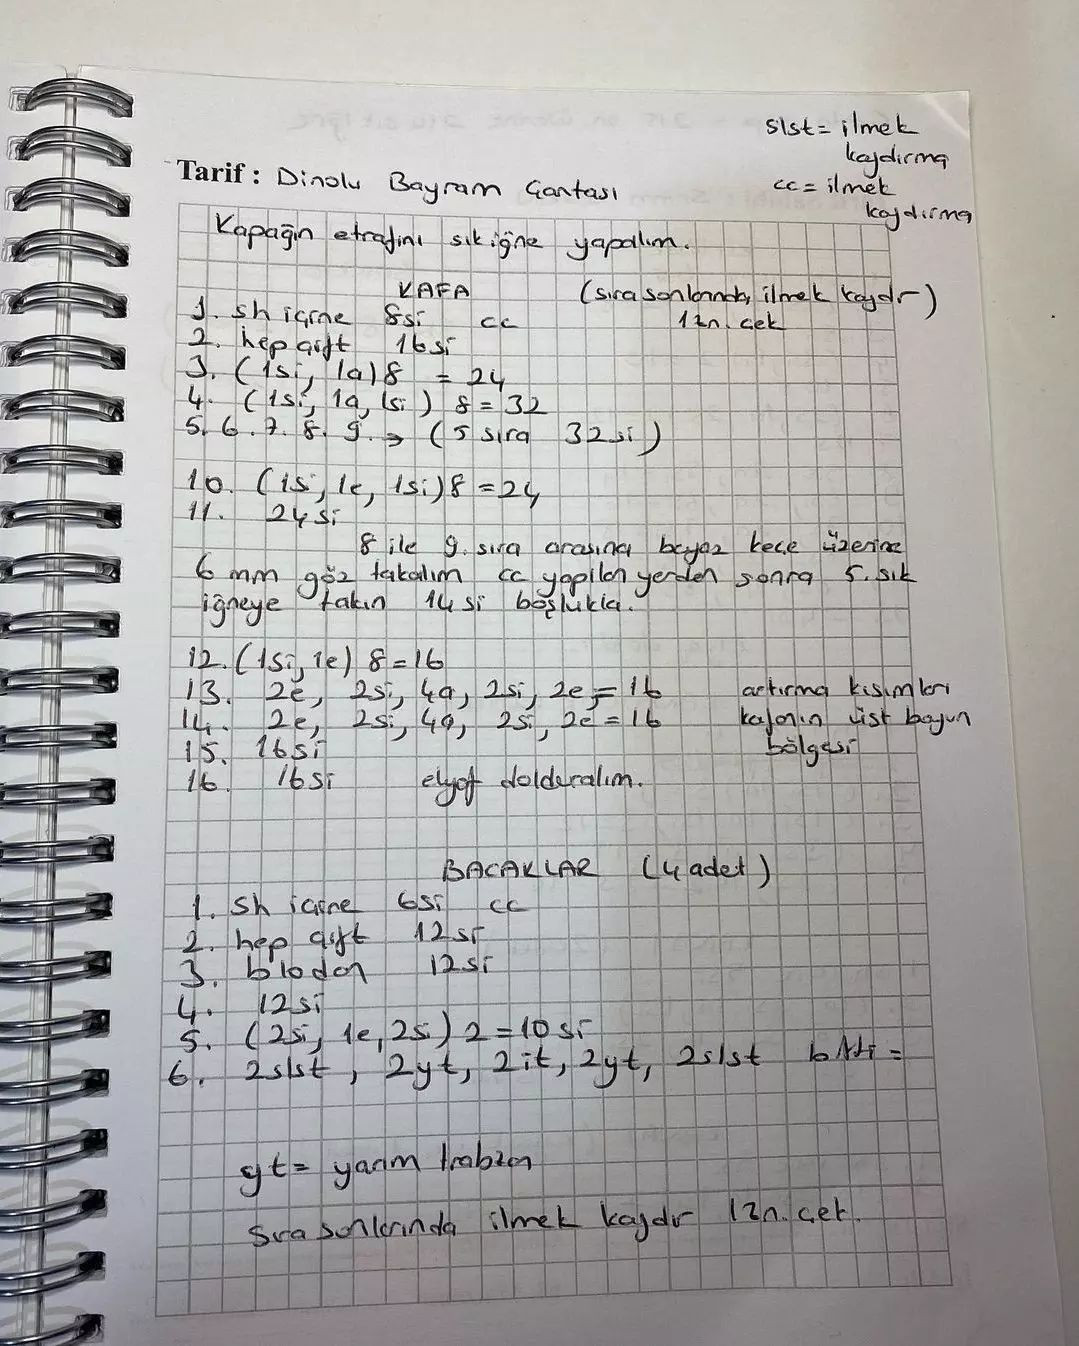 slst = ilmek
kaydırma
Tarif : Dinolu Bayram Çantası
cc = ilmek
kaydırma
Kapağın etrafını sık iğne yapalım.
KAFA (sıra sonlarında ilmek kaydır)
1. sh içine 8si cc 1zn. çek
2. hep çift 16si
3. (1si, 1a)8 = 24
4. (1si, 1a, 1si) 8 = 32
5. 6. 7. 8. 9. → (5 sıra 32si)
10. (1si, 1e, 1si)8 = 24
11. 24si
8 ile 9. sıra arasına beyaz keçe üzerine
6 mm göz takalım cc yapılan yerden sonra 5. sık
iğneye takın 14si boşlukla.
12. (1si, 1e) 8 = 16
13. 2e, 2si, 4a, 2si, 2e = 16 artırma kısımları
14. 2e, 2si, 4a, 2si, 2e = 16 kafanın üst boyun
15. 16si bölgesi
16. 16si elyaf dolduralım.
BACAKLAR (4 adet)
1. sh içine 6si cc
2. hep çift 12si
3. blodan 12si
4. 12si
5. (2si, 1e, 2si) 2 = 10si
6. 2slst, 2yt, 2it, 2yt, 2slst bitti =
yt = yarım trabzan
Sıra sonlarında ilmek kaydır 1zn. çek.